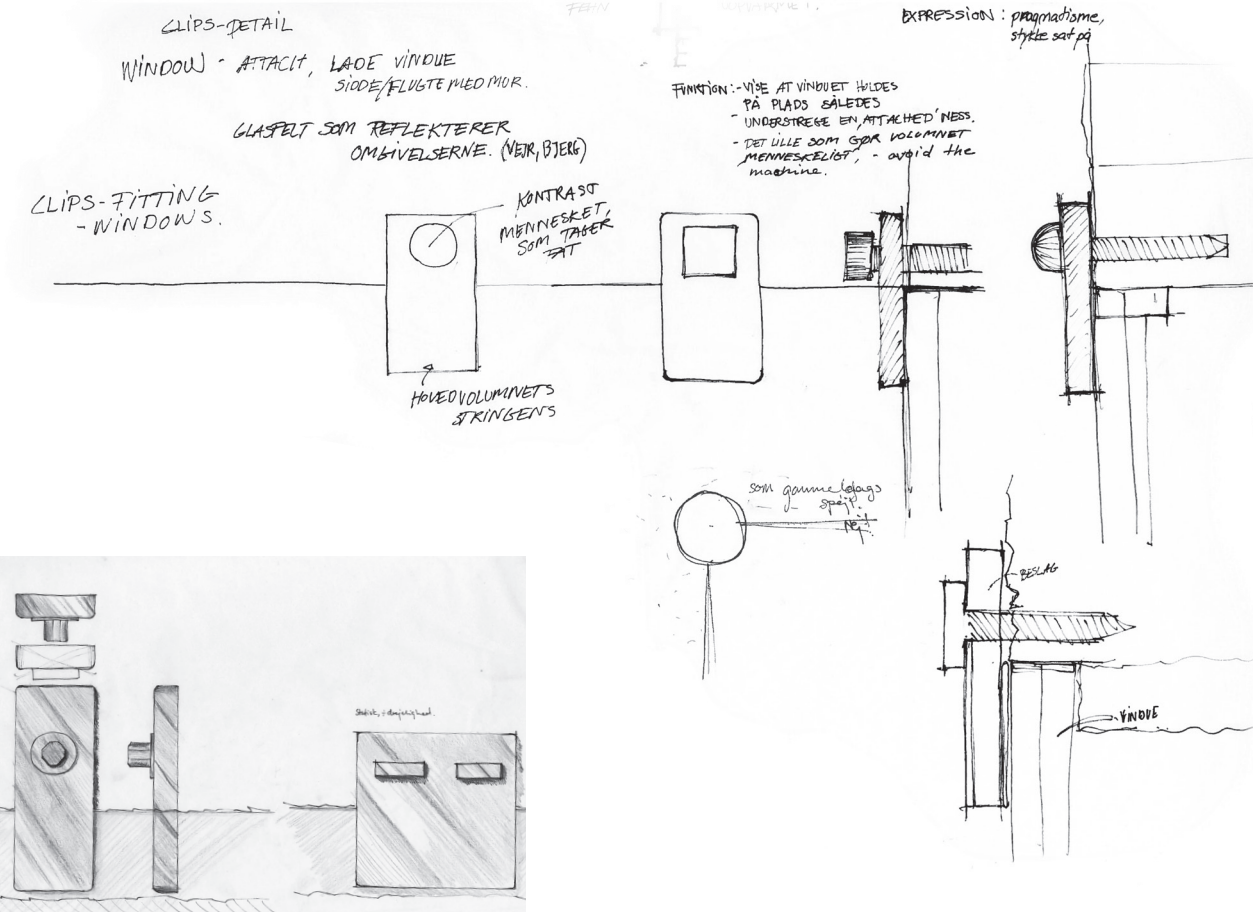 CLIPS-DETAIL
WINDOW - ATTACH, LADE VINDUE
SIDDE/FLUGTE MED MUR.
GLASFELT SOM REFLEKTERER
OMGIVELSERNE. (VEJR, BJERG)
CLIPS-FITTING
- WINDOWS.
KONTRAST
MENNESKET,
SOM TAGER
HOVEDVOLUMNETS
STRINGENS
EXPRESSION : pragmatisme,
stykke sat på
FUNKTION: - VISE AT VINDUET HOLDES
PÅ PLADS SÅLEDES
- UNDERSTREGE EN 'ATTACHED'NESS.
- DET LILLE SOM GØR VOLUMNET
MENNESKELIGT, - avoid the
machine.
som gammeldags
spejl.
Nej!
BESLAG
VINDUE